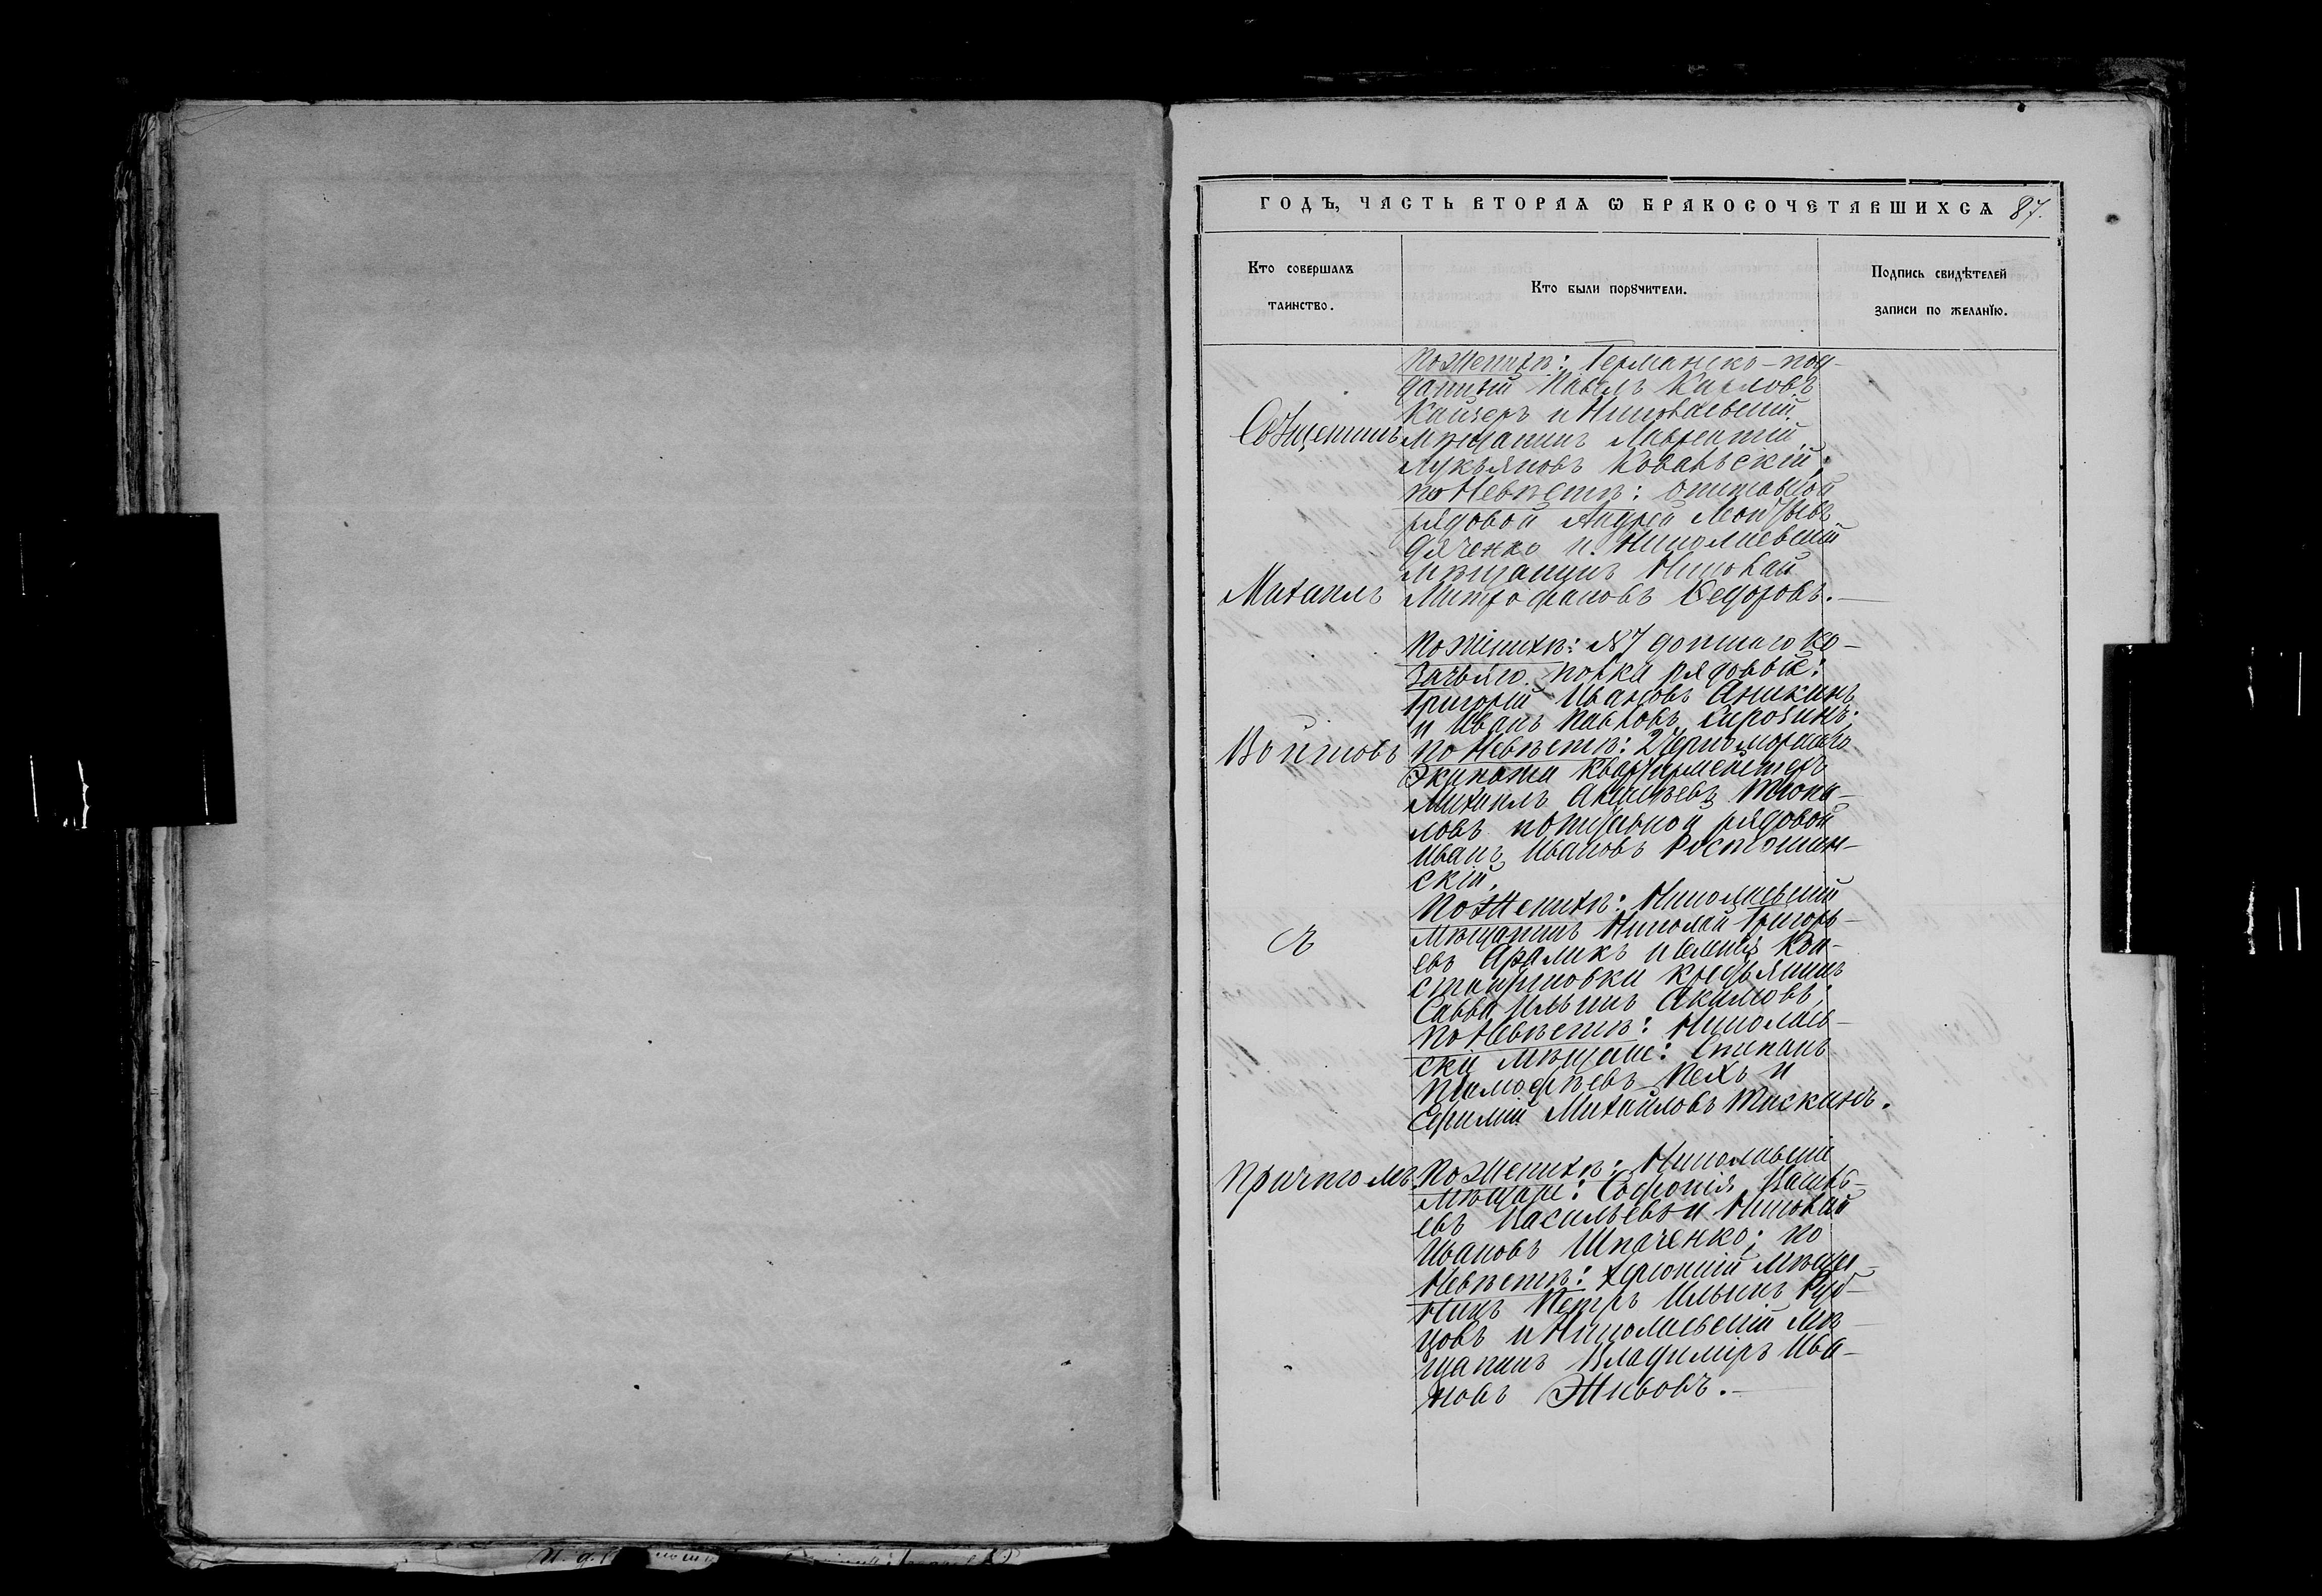 ГОДЪ, ЧАСТЬ ВТОРАѦ Ѡ БРАКОСОЧЕТАВШИХСѦ 87.
Кто совершалъ
таинство.
Кто были порꙋчители.
Подпись свидѣтелей
записи по желанїю.
Священникъ
Михаилъ
Войтовъ
съ
причтомъ.
По женихѣ: Германско-под-
данный Павелъ Карловъ
Кайзеръ и Николаевскій
мѣщанинъ Лаврентій
Лукьяновъ Ковальскій;
по невѣстѣ: отставной
рядовой Андрей
Дяченко и Николаевскій
мѣщанинъ Николай
Митрофановъ Ѳедоровъ.
По женихѣ: №7 донскаго ка-
зачьяго полка рядовые:
Григорій Ивановъ Аникинъ
и Иванъ Павловъ
по невѣстѣ: 2 Черноморскаго
Экипажа квартирмейстеръ
Михаилъ
ловъ отставной рядовой
Иванъ Ивановъ Ростошин-
скій.
По женихѣ: Николаевскій
мѣщанинъ Николай Григорь-
евъ и селенія Кон-
стантиновки крестьянинъ
Савва Ильинъ Акимовъ;
по невѣстѣ: Николаев-
скіе мѣщане: Степанъ
Тимофѣевъ Пехъ и
Ефимій Михайловъ Тискинъ.
По женихѣ: Николаевскіе
мѣщане: Софронія Василь-
евъ Васильевъ и Николай
Ивановъ Шпаченко; по
невѣстѣ: Херсонскій мѣща-
нинъ Петръ Ильинъ Руб-
цовъ и Николаевскій мѣ-
щанинъ Владиміръ Ива-
новъ Живовъ.